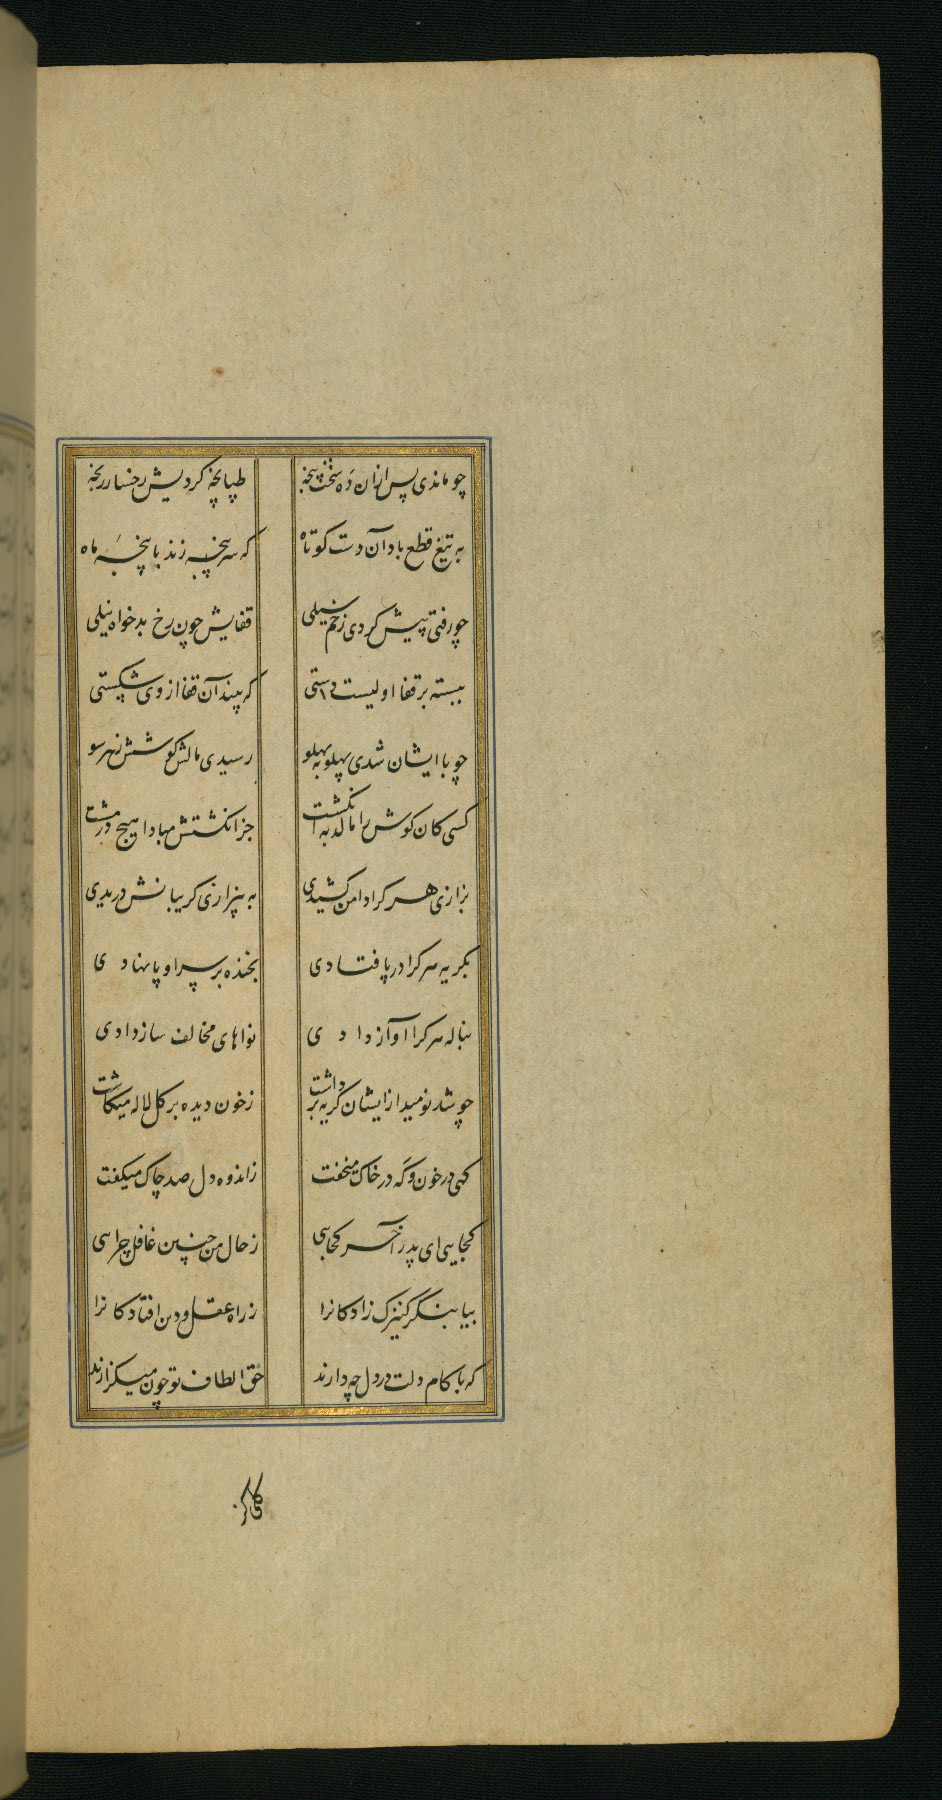 چو ماندی پس ازان ده سخت پنجه طپانچه کردیش رخسار رنجه
به تیغ قطع باد آن دست کوتاه که سر پنجه زند با پنجهٔ ماه
چو رفتی پیش کردی زخم سیلی قفایش چون رخ بدخواه نیلی
ببسته بر قفا اولیست دستی که بیند آن قفا از وی شکستی
چو با ایشان شدی پهلو به پهلو رسیدی مالش کوشش زهر سو
کسی کان کوش را مالد به انکشت جز انکشتش مبادا هیچ در مشت
بزاری هر کرا دامن کشیدی به بیزاری کریبانش دریدی
بکریه هر کرا در پا فتادی بخنده بر سر او پا نهادی
بناله هر کرا آواز دادی نواهای مخالف ساز دادی
چو شد نومید از ایشان کریه برداشت ز خون دیده بر کل لاله میکاشت
کهی در خون و که در خاک میخفت ز اندوه دل صد چاک میکفت
کجایی ای پدر آخر کجایی ز حال من چنین غافل چرایی
بیا بنکر کنیزک زادکانرا ز راه عقل و دین افتادکانرا
که با کام دلت در دل چه دارند حق الطاف تو چون میکزارند